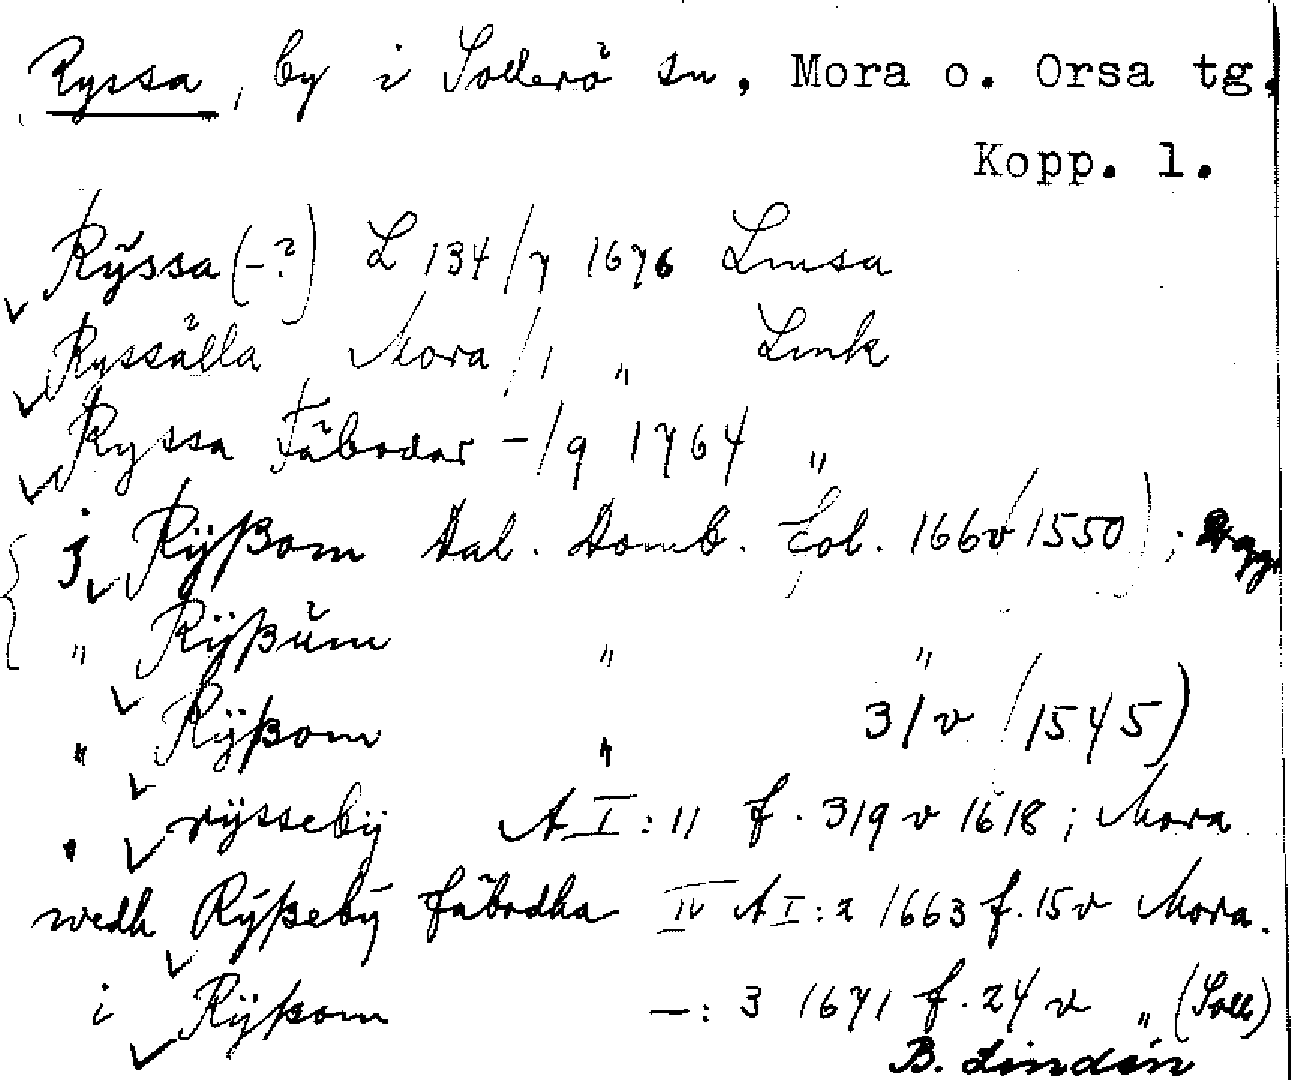 Ryssa, by i Sollerö sn, Mora o. Orsa tg.
Kopp. l.
Rÿssa (-?) L 134/7 1676 Lmsa
Ryssälla Mora /1 " Lmk
Ryssa Fäbodar -/9 1764 "
j Rÿßom Dal. Domb. fol. 166v (1550);
" Rÿßŭm " "
" Rÿßom " 31v (1545)
rÿssebÿ A I:11 f. 319v 1618; Mora
wedh Rÿßebÿ fäbodha IV A I:2 1663 f. 15v Mora.
i Rÿßom —: 3 1671 f. 24v " (Soll)
B. Lindén